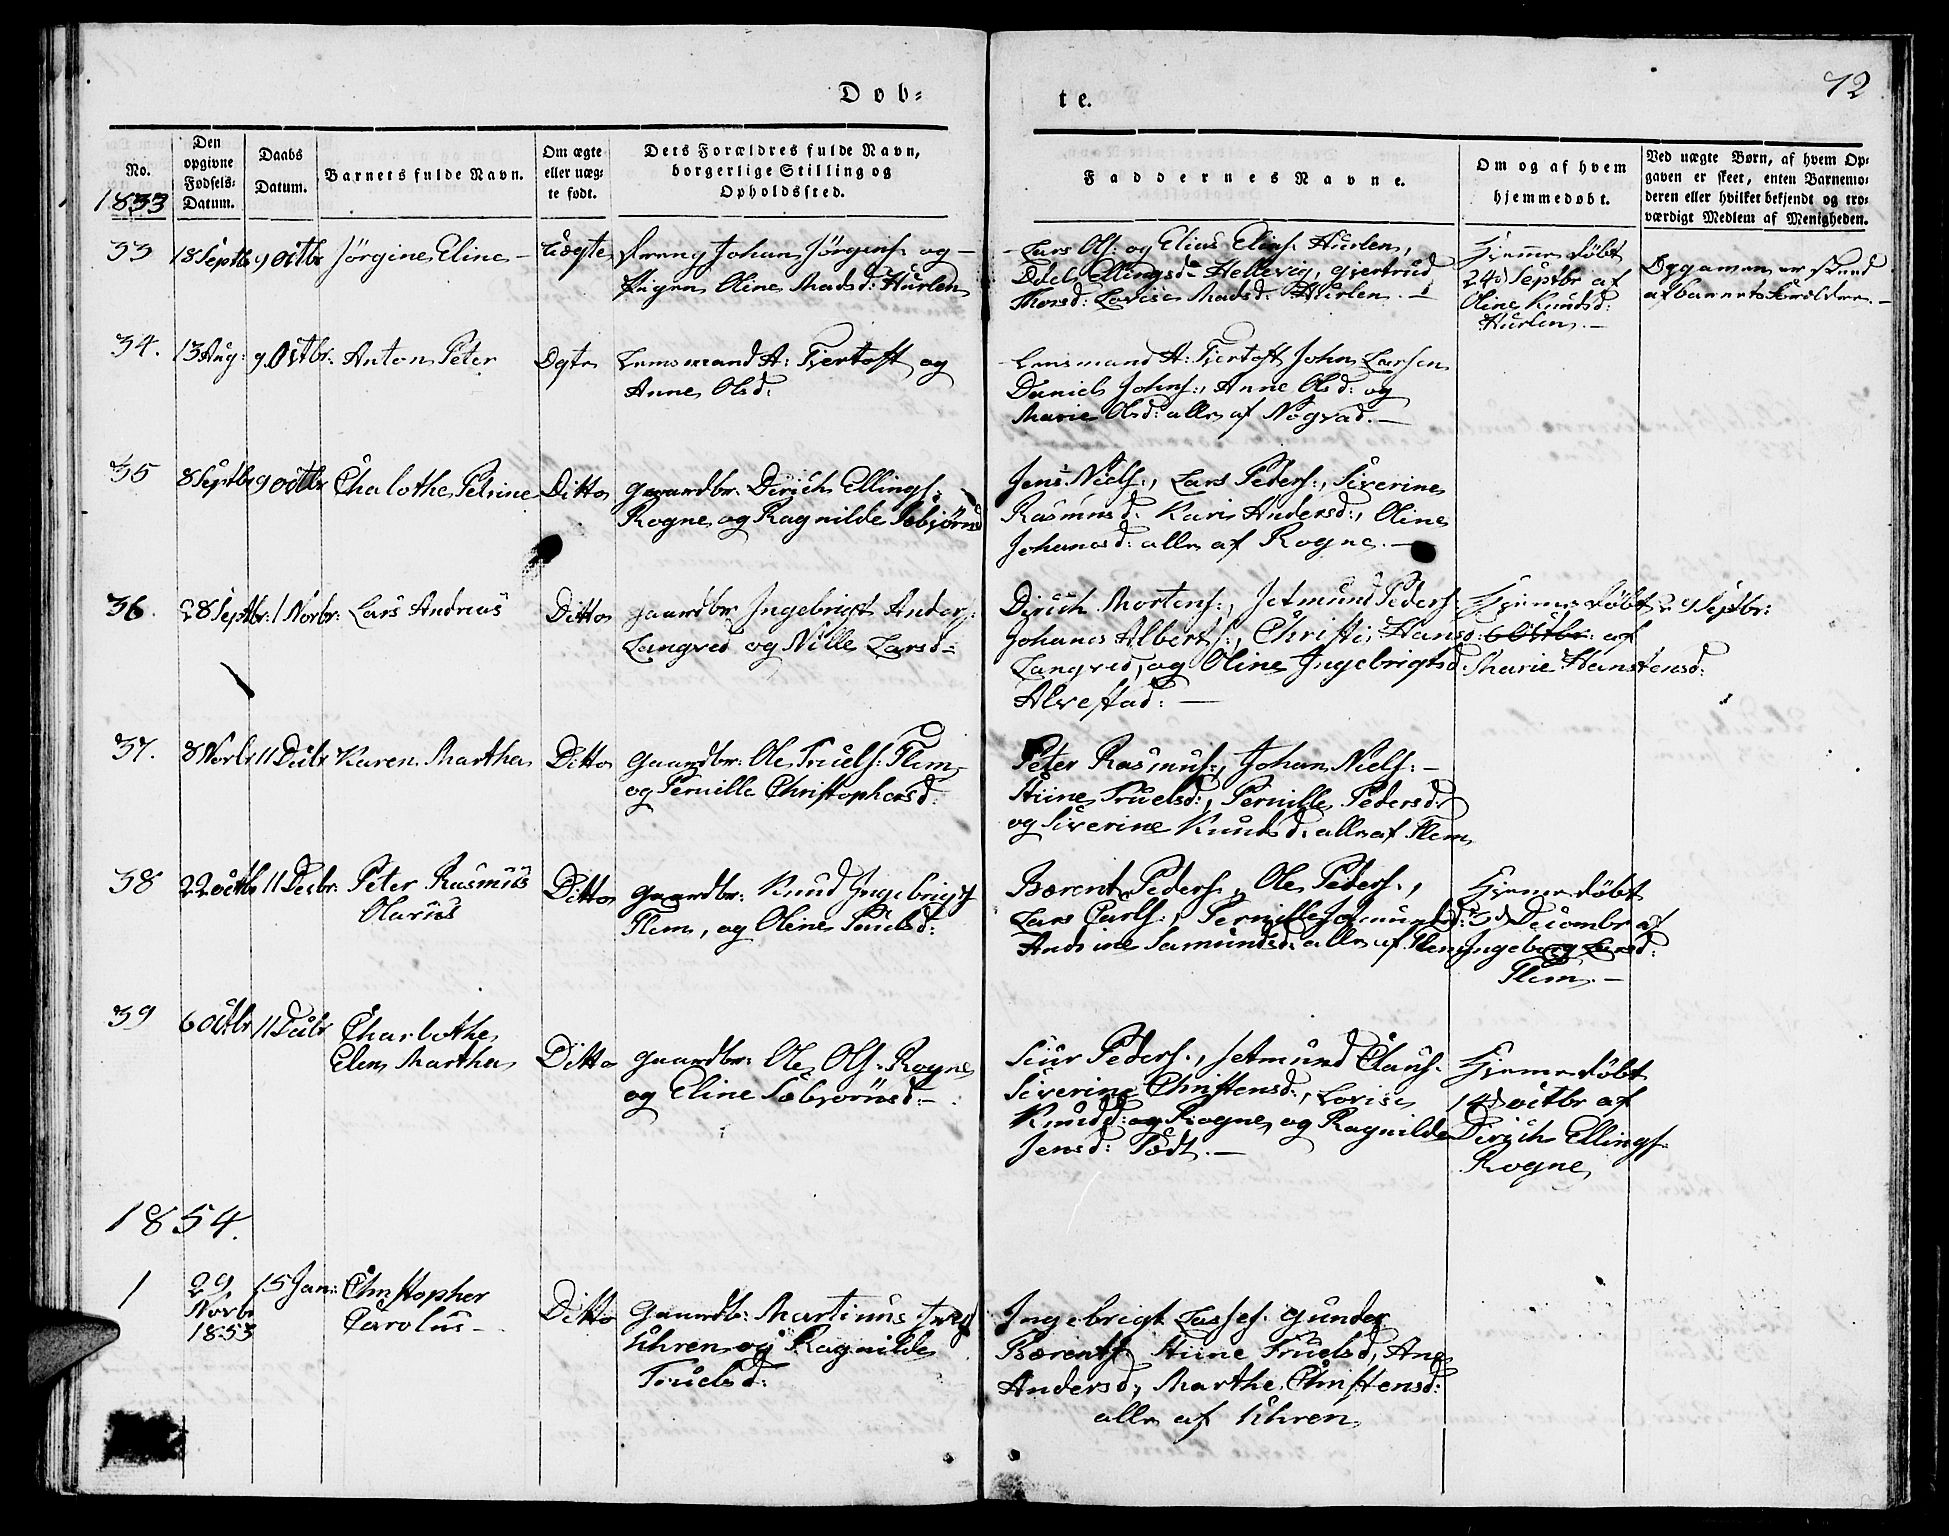 72
Døb=
te.
No.
1853
Den opgivne Fødsels-Datum.
Daabs Datum.
Barnets fulde Navn.
Om ægte eller uæg-te født.
Dets Forældres fulde Navn, borgerlige Stilling og Opholdssted.
Faddernes Navne.
Om og af hvem hjemmedøbt.
Ved uægte Børn, af hvem Op-gaven er skeet, enten Barnemo-deren eller hvilket bekjendt og tro-værdigt Medlem af Menigheden.
33 18 Septb 9 Octbr Jörgine Eline Uægte Dreng Johan Jörgens: og
Pigen Oline Madsd: Hurlen
Lars Ols: og Elias Elias: Hurlen,
Ellingsd: Hellevig, Gjertrud
Thorsd: Lovise Madsd: Hurlen.
Hjemmedöbt
24d Septbr af
Oline Knudsd:
Hurlen.
Opgaven er skeed
af barnets Forældre.
34. 13 Aug: 9. Octbr. Anton Peter Ægte Lensmand A: Fjertoft og
Anne Olsd:
Lensmand A: Fjertoft John Larsen
Daniel Johns:, Anne Olsd: og
Marie Olsd: alle af Nogvad.
35 8 Septbr 9 Octbr Chalothe Petrine Ditto Gaardbr: Dirich Ellings:
Rogne og Ragnilde Sæbjörnsd
Jens Niels:, Lars Peders:, Siverine
Rasmusd: Karis Andersd:, Oline
Johannesd: alle af Rogne.
36. 28 Septbr: 1 Novbr: Lars Andreas Ditto Gaardbr Ingebrigt Anders:
Langved og Nille Larsd:
Dirich Mortens:, Jetmund Peders
Johanes Alberts:, Christi Hansd:
Langved, og Oline Ingebrigtsd
Alvestad:
Hjemmedöbt 29 Septbr:
6 Octbr: af
Marie Hanstensd:
37. 8 Novbr 11 Decbr Karen Martha Ditto Gaardbr: Ole Truels: Flem
og Pernille Christophersd:
Peter Rasmus:, Johan Niels:
Stine Truelsd:, Pernille Pedersd:
og Siverine Knudsd: alle af Flem
38 22 Octbr 11 Decbr: Peter Rasmus
Olarius
Ditto Gaardbr: Knud Ingebrigts
Flem, og Oline Truelsd:
Bærent Peders:, Ole Peders:,
Lars Carls:, Pernille Jetmundsd:
Andrine Samundsd: alle af Flem
Hjemmedöbt
3d Decembr af
Ingeborg Larsd:
Flem.
39 6 Octbr 11 Decbr Charlothe
Elen Martha Ditto Gaardbr: Ole Ols: Rogne
og Eline Sæbjörnsd:
Siur Peders:, Jetmund Claus:
Siverine Christensd:, Lovise
Knudsd: og Rogne, og Ragnilde
Jensd:
Hjemmedöbt
14d Octbr af
Dirich Ellings:
Rogne
1854.
1 29
Novbr
1853
15 Jan: Christopher
Carolus
Ditto Gaardbr: Martinus
Uhren og Ragnilde
Truelsd:
Ingebrigt Lasses: Gunder
Bærents: Stine Truelsd:, Ane
Andersd:, Marthe Christensd:
alle af Uhren